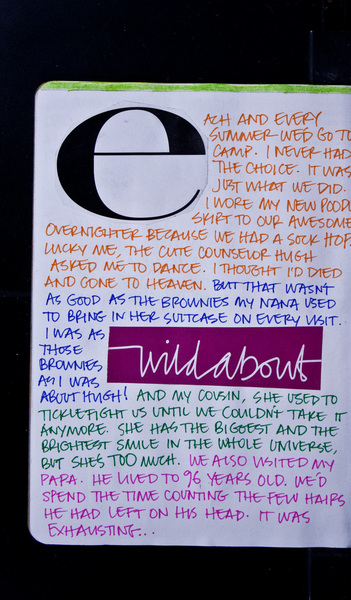 e
ACH AND EVERY
SUMMER WE'D GO TO
CAMP. I NEVER HAD
THE CHOICE. IT WAS
JUST WHAT WE DID.
I WORE MY NEW POODL
SKIRT TO OUR AWESOME
OVERNIGHTER BECAUSE WE HAD A SOCK HOP.
LUCKY ME, THE CUTE COUNSELOR HUGH
ASKED ME TO DANCE. I THOUGHT I'D DIED
AND GONE TO HEAVEN. BUT THAT WASN'T
AS GOOD AS THE BROWNIES MY NANA USED
TO BRING IN HER SUITCASE ON EVERY VISIT.
I WAS AS
THOSE
BROWNIES
AS I WAS
wild about
ABOUT HUGH! AND MY COUSIN, SHE USED TO
TICKLEFIGHT US UNTIL WE COULDN'T TAKE IT
ANYMORE. SHE HAS THE BIGGEST AND THE
BRIGHTEST SMILE IN THE WHOLE UNIVERSE,
BUT SHE'S TOO MUCH. WE ALSO VISITED MY
PAPA. HE LIVED TO 96 YEARS OLD. WE'D
SPEND THE TIME COUNTING THE FEW HAIRS
HE HAD LEFT ON HIS HEAD. IT WAS
EXHAUSTING...